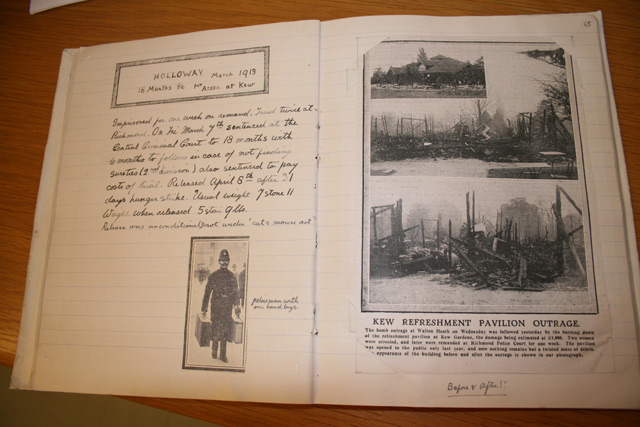 HOLLOWAY March 1913
18 Months &c 1st Arson at Kew
Imprisoned for one week on remand. Tried twice at
Richmond. On Fri. March 7th sentenced at the
Central Criminal Court to 18 months with
6 months to follow in case of not finding
sureties (2nd division) also sentenced to pay
costs of trial. Released April 8th after 31
days' hunger strike. Usual weight 7 stone 11
Weight when released 5 stone 9 lbs.
Release was unconditional & not under 'cat & mouse act'
policeman with
our hand bags
KEW REFRESHMENT PAVILION OUTRAGE.
The bomb outrage at Walton Heath on Wednesday was followed yesterday by the burning down
of the refreshment pavilion at Kew Gardens, the damage being estimated at £1,000. Two women
were arrested, and later were remanded at Richmond Police Court for one week. The pavilion
was opened to the public only last year, and now nothing remains but a twisted mass of debris.
appearance of the building before and after the outrage is shown in our photograph.
Before & After!!